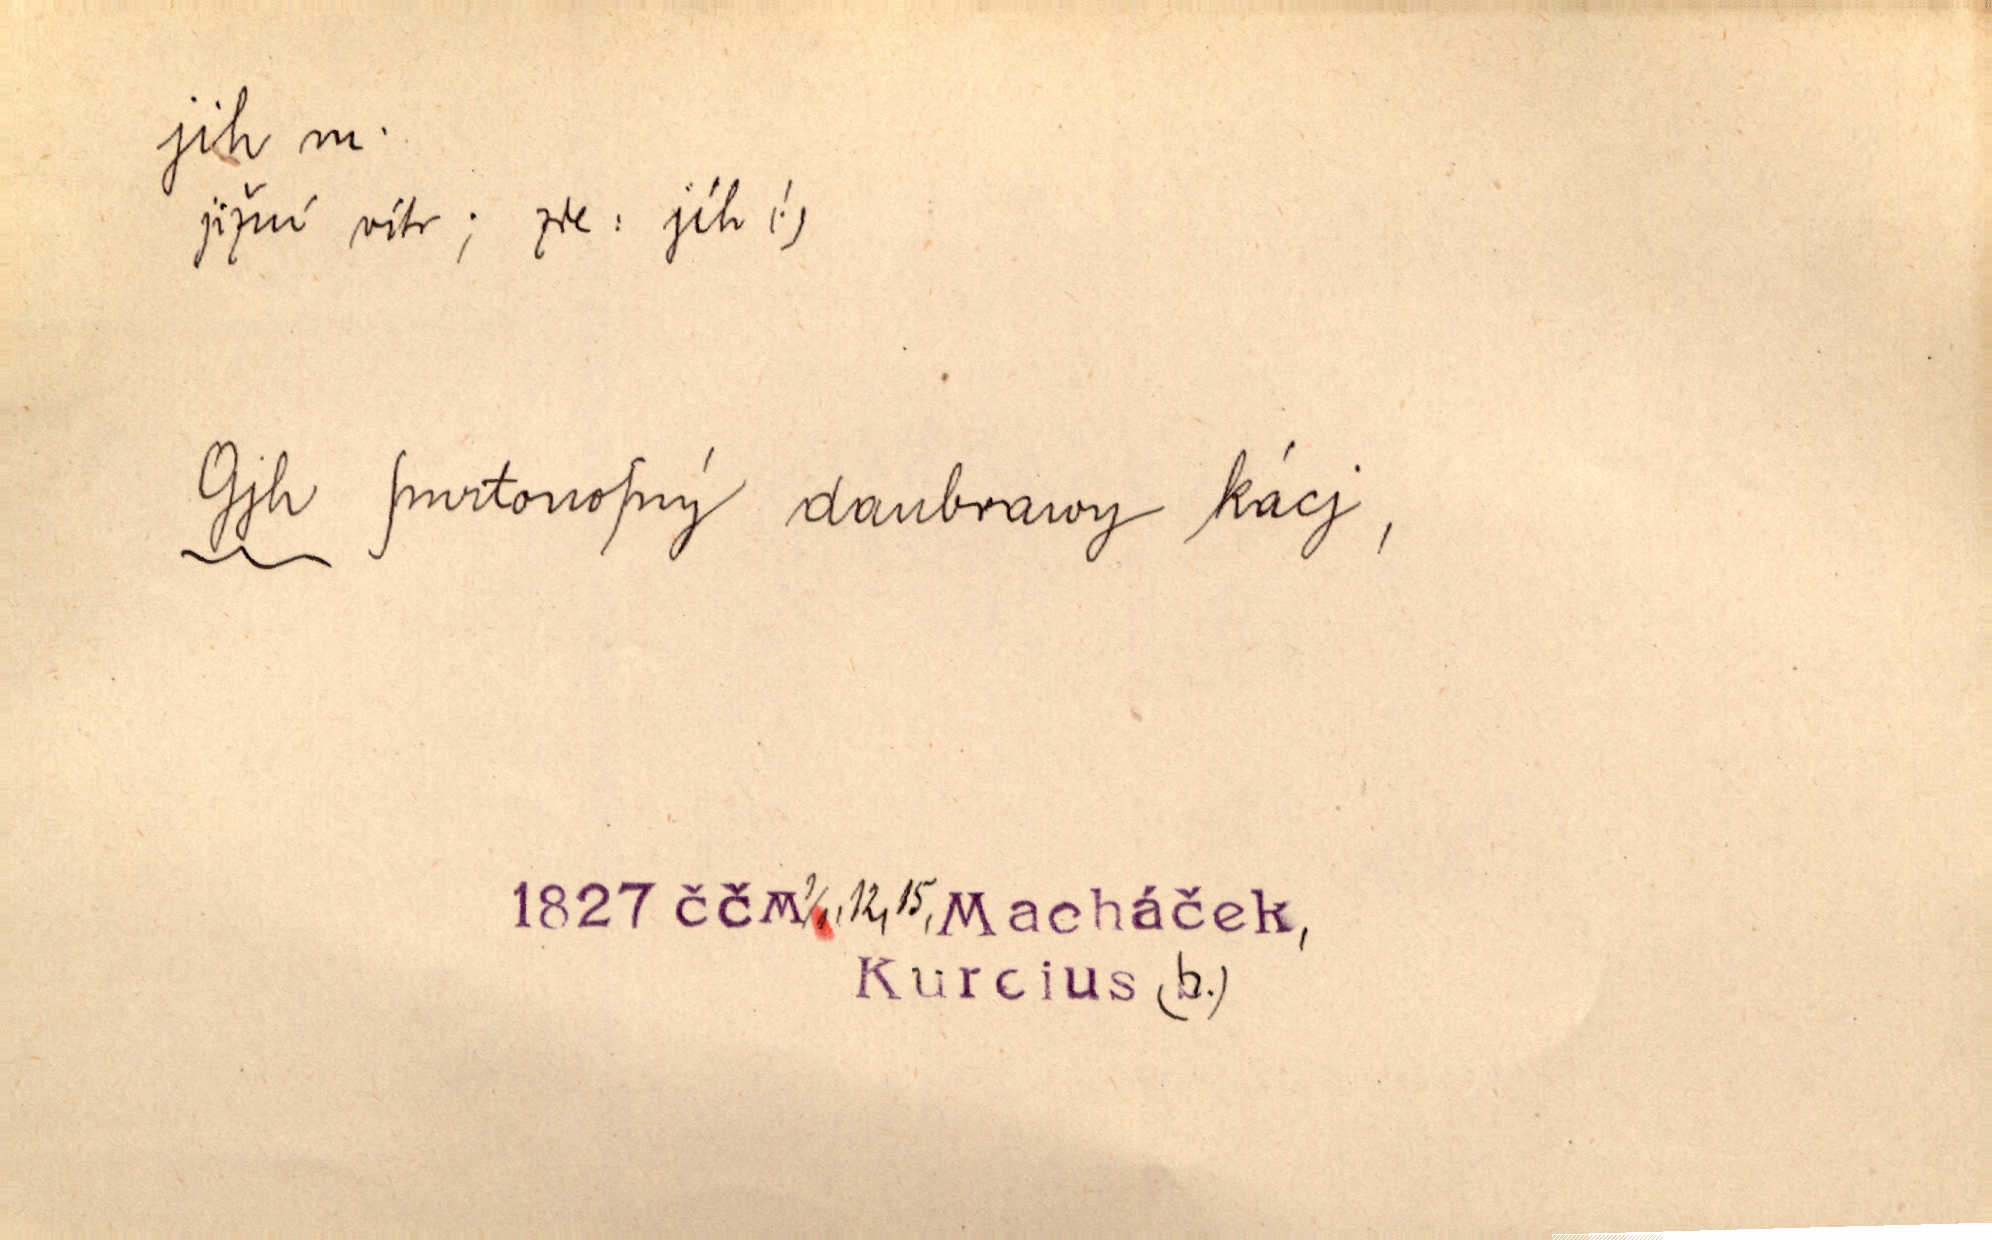 jih m.
jižní vítr; zde: jíh (!)
Gjh ſmrtonoſný daubrawy kácj,
1827 ččM 1/1, 12, 15, Macháček,
Kurcius (b.)